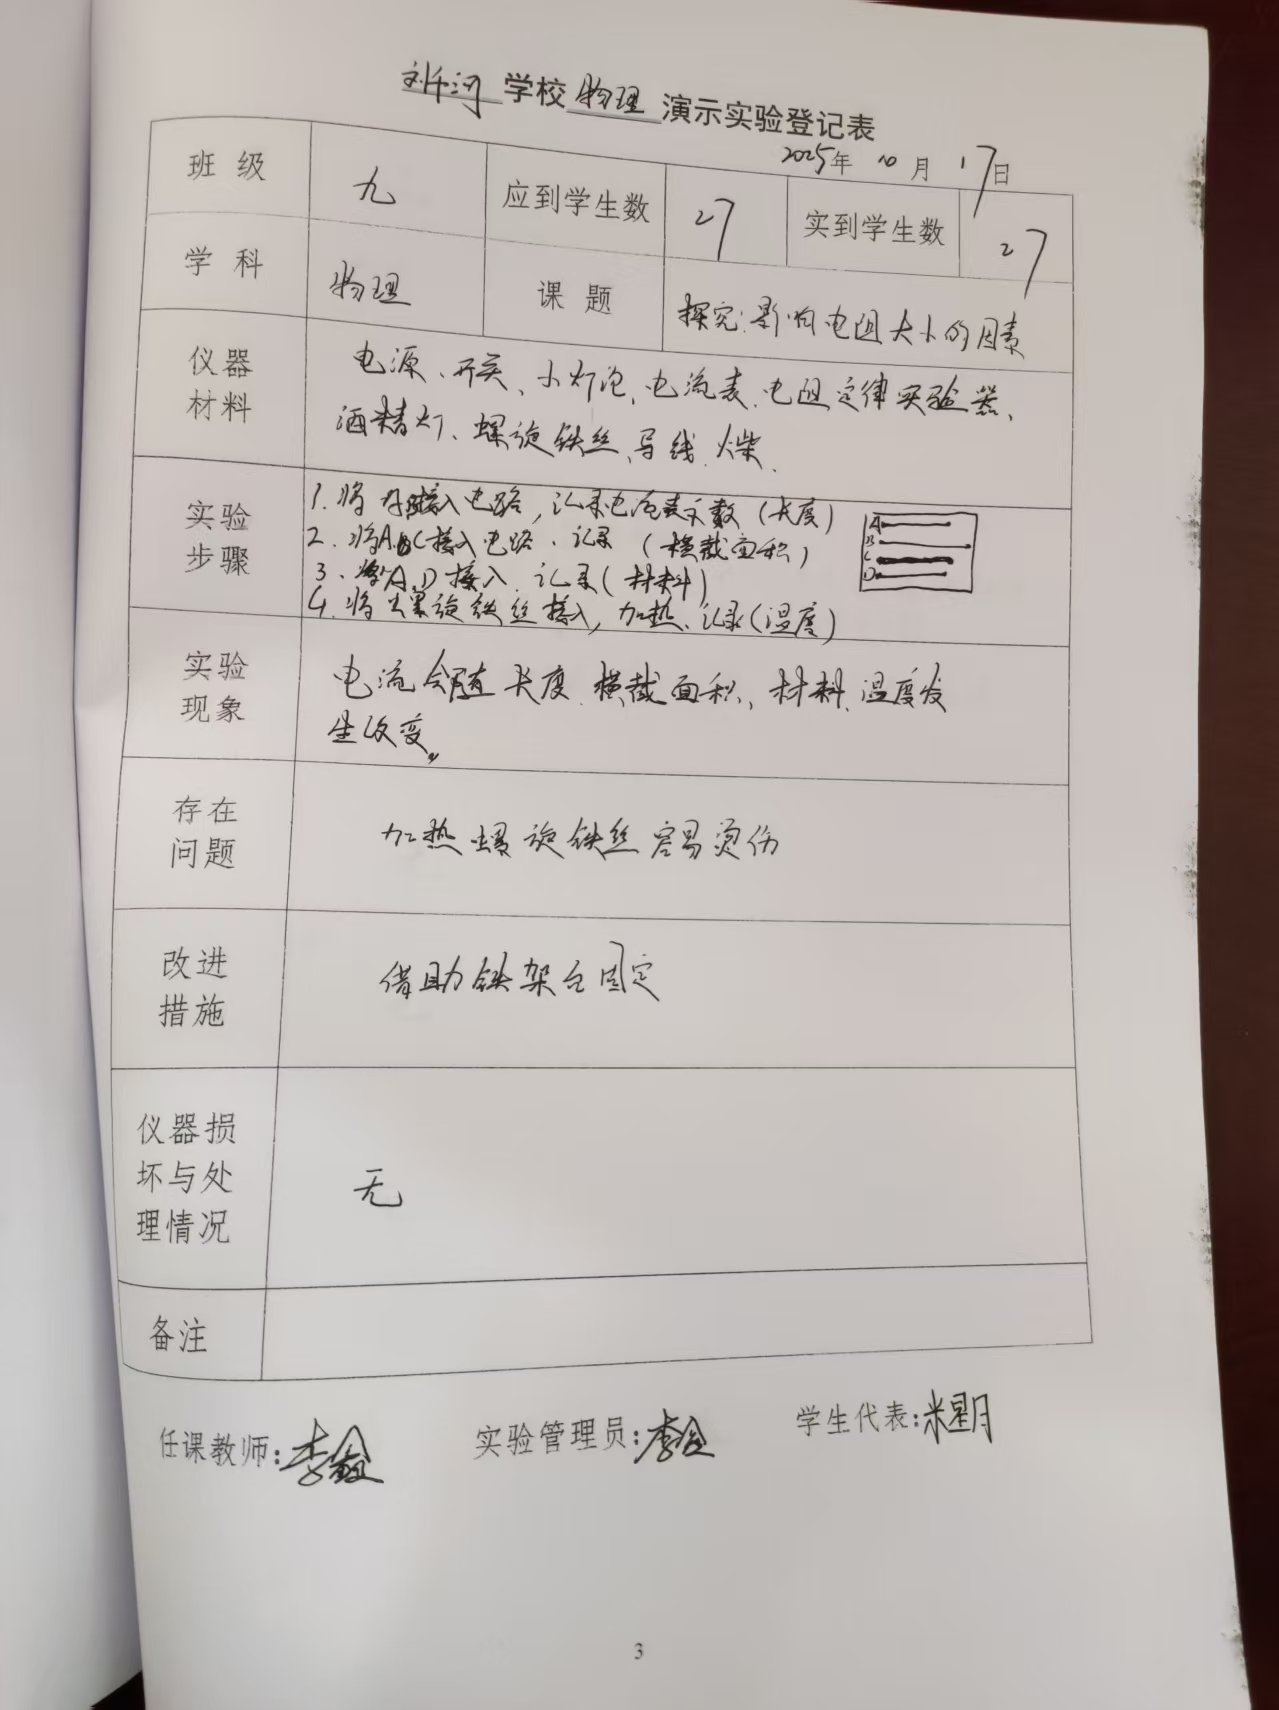 刘千河学校物理演示实验登记表
2025年10月17日
班级 九 应到学生数 27 实到学生数 27
学科 物理 课题 探究:影响电阻大小的因素
仪器
材料
电源、开关、小灯泡、电流表、电阻定律实验器、
酒精灯、螺旋铁丝、导线、火柴、
实验
步骤
1.将AB接入电路,记录电流表示数(长度)
2.将A、C接入电路.记录(横截面积)
3.将A、D接入、记录(材料)
4.将螺旋铁丝接入,加热、记录(温度)
A
B
C
D
实验
现象
电流会随长度、横截面积、材料、温度发
生改变。
存在
问题
加热螺旋铁丝容易烫伤
改进
措施
借助铁架台固定
仪器损
坏与处
理情况
无
备注
任课教师:李鑫 实验管理员:李鑫 学生代表:
3